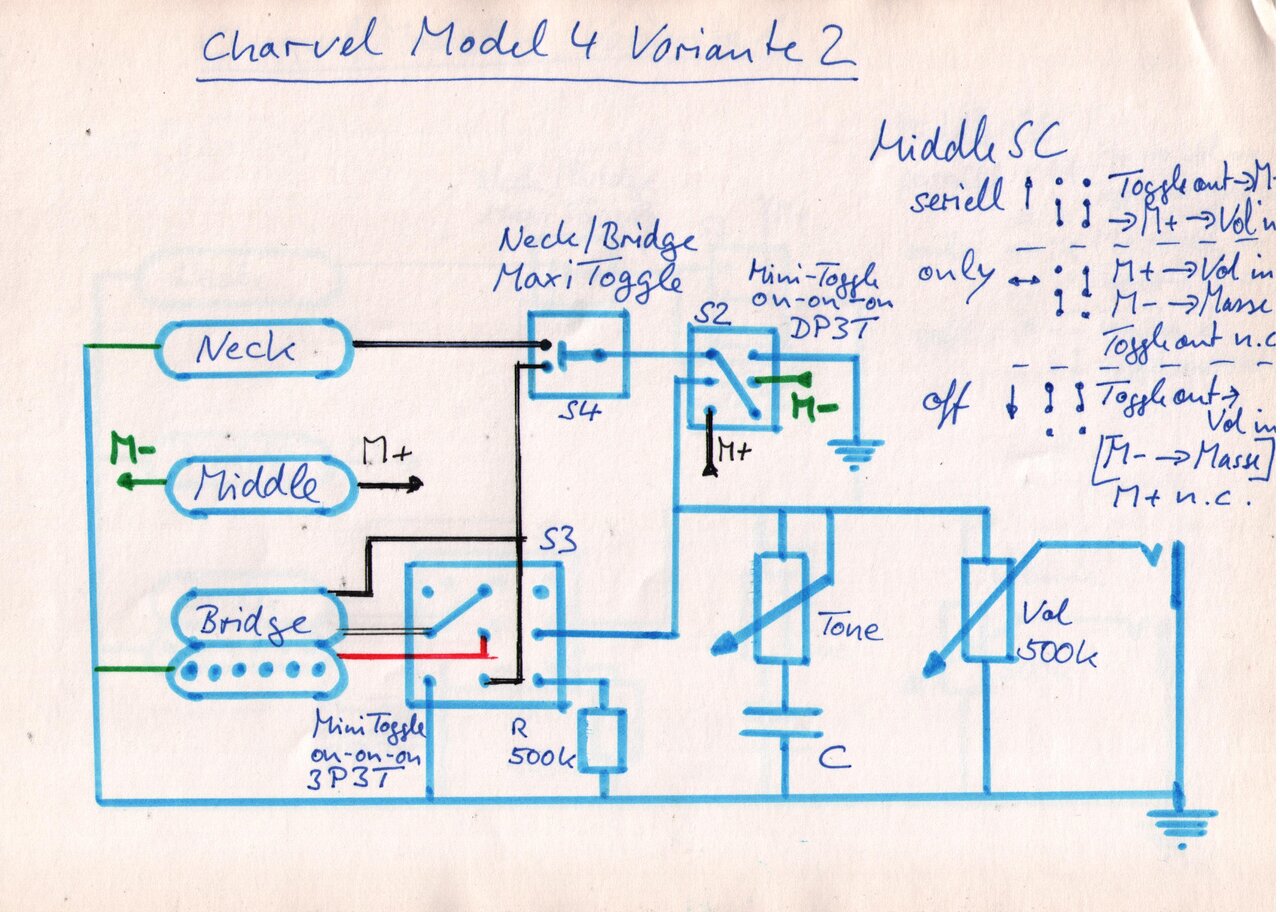 Charvel Model 4 Variante 2
Middle SC
seriell ↑ Toggle out → M-
→ M+ → Vol in
only ↔ M+ → Vol in
M- → Masse
Toggle out n.c
off ↓ Toggle out →
Vol in
[M- → Masse]
M+ n.c.
Neck/Bridge
Maxi Toggle
Mini-Toggle
on-on-on
DP3T
S2
Neck
S4
M-
M+
M-
M+
Middle
S3
Bridge
Tone
Vol
500k
Mini Toggle
on-on-on
3P3T
R
500k
C